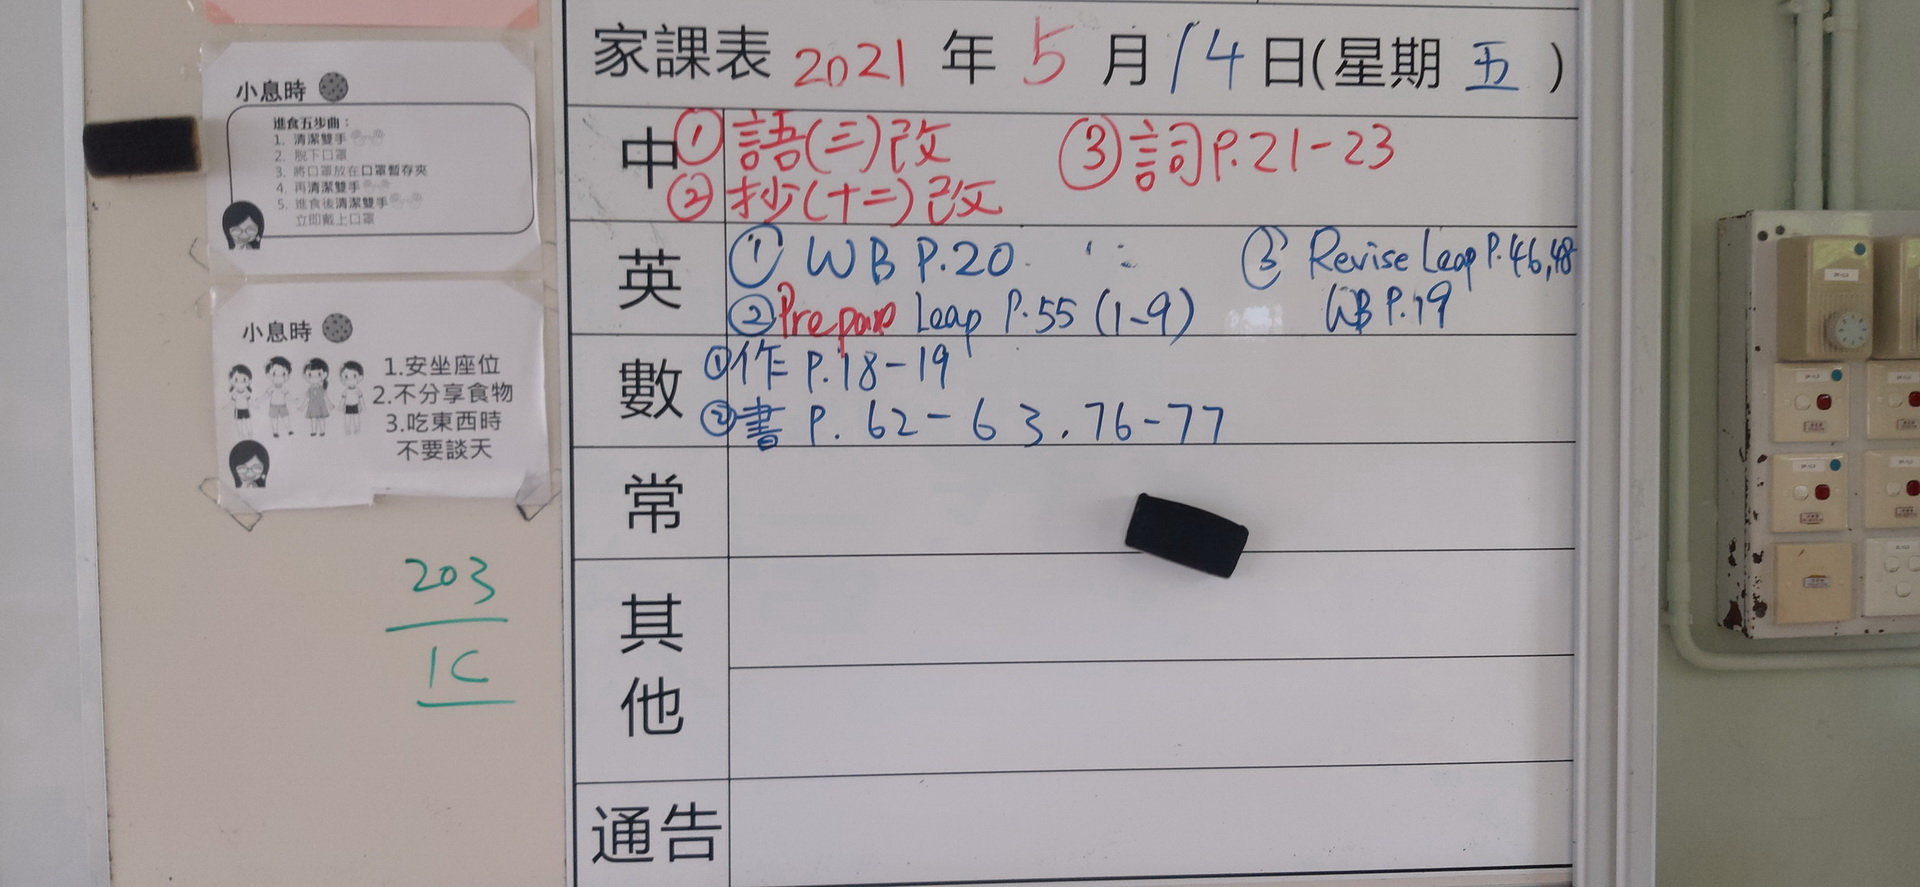 小息時
進食五步曲：
1. 清潔雙手
2. 脫下口罩
3. 將口罩放在口罩暫存夾
4. 再清潔雙手
5. 進食後清潔雙手
立即戴上口罩
小息時
1.安坐座位
2.不分享食物
3.吃東西時
不要談天
203
1C
家課表 2021 年 5 月 14 日(星期 五 )
中 ① 語(三)改 ③ 詞 P.21-23
② 抄(十二)改
英 ① WB P.20 ③ Revise Leap P.46,48
② Prepare Leap P.55 (1-9) WB P.19
數 ① 作 P.18-19
② 書 P. 62-63. 76-77
常
其他
通告